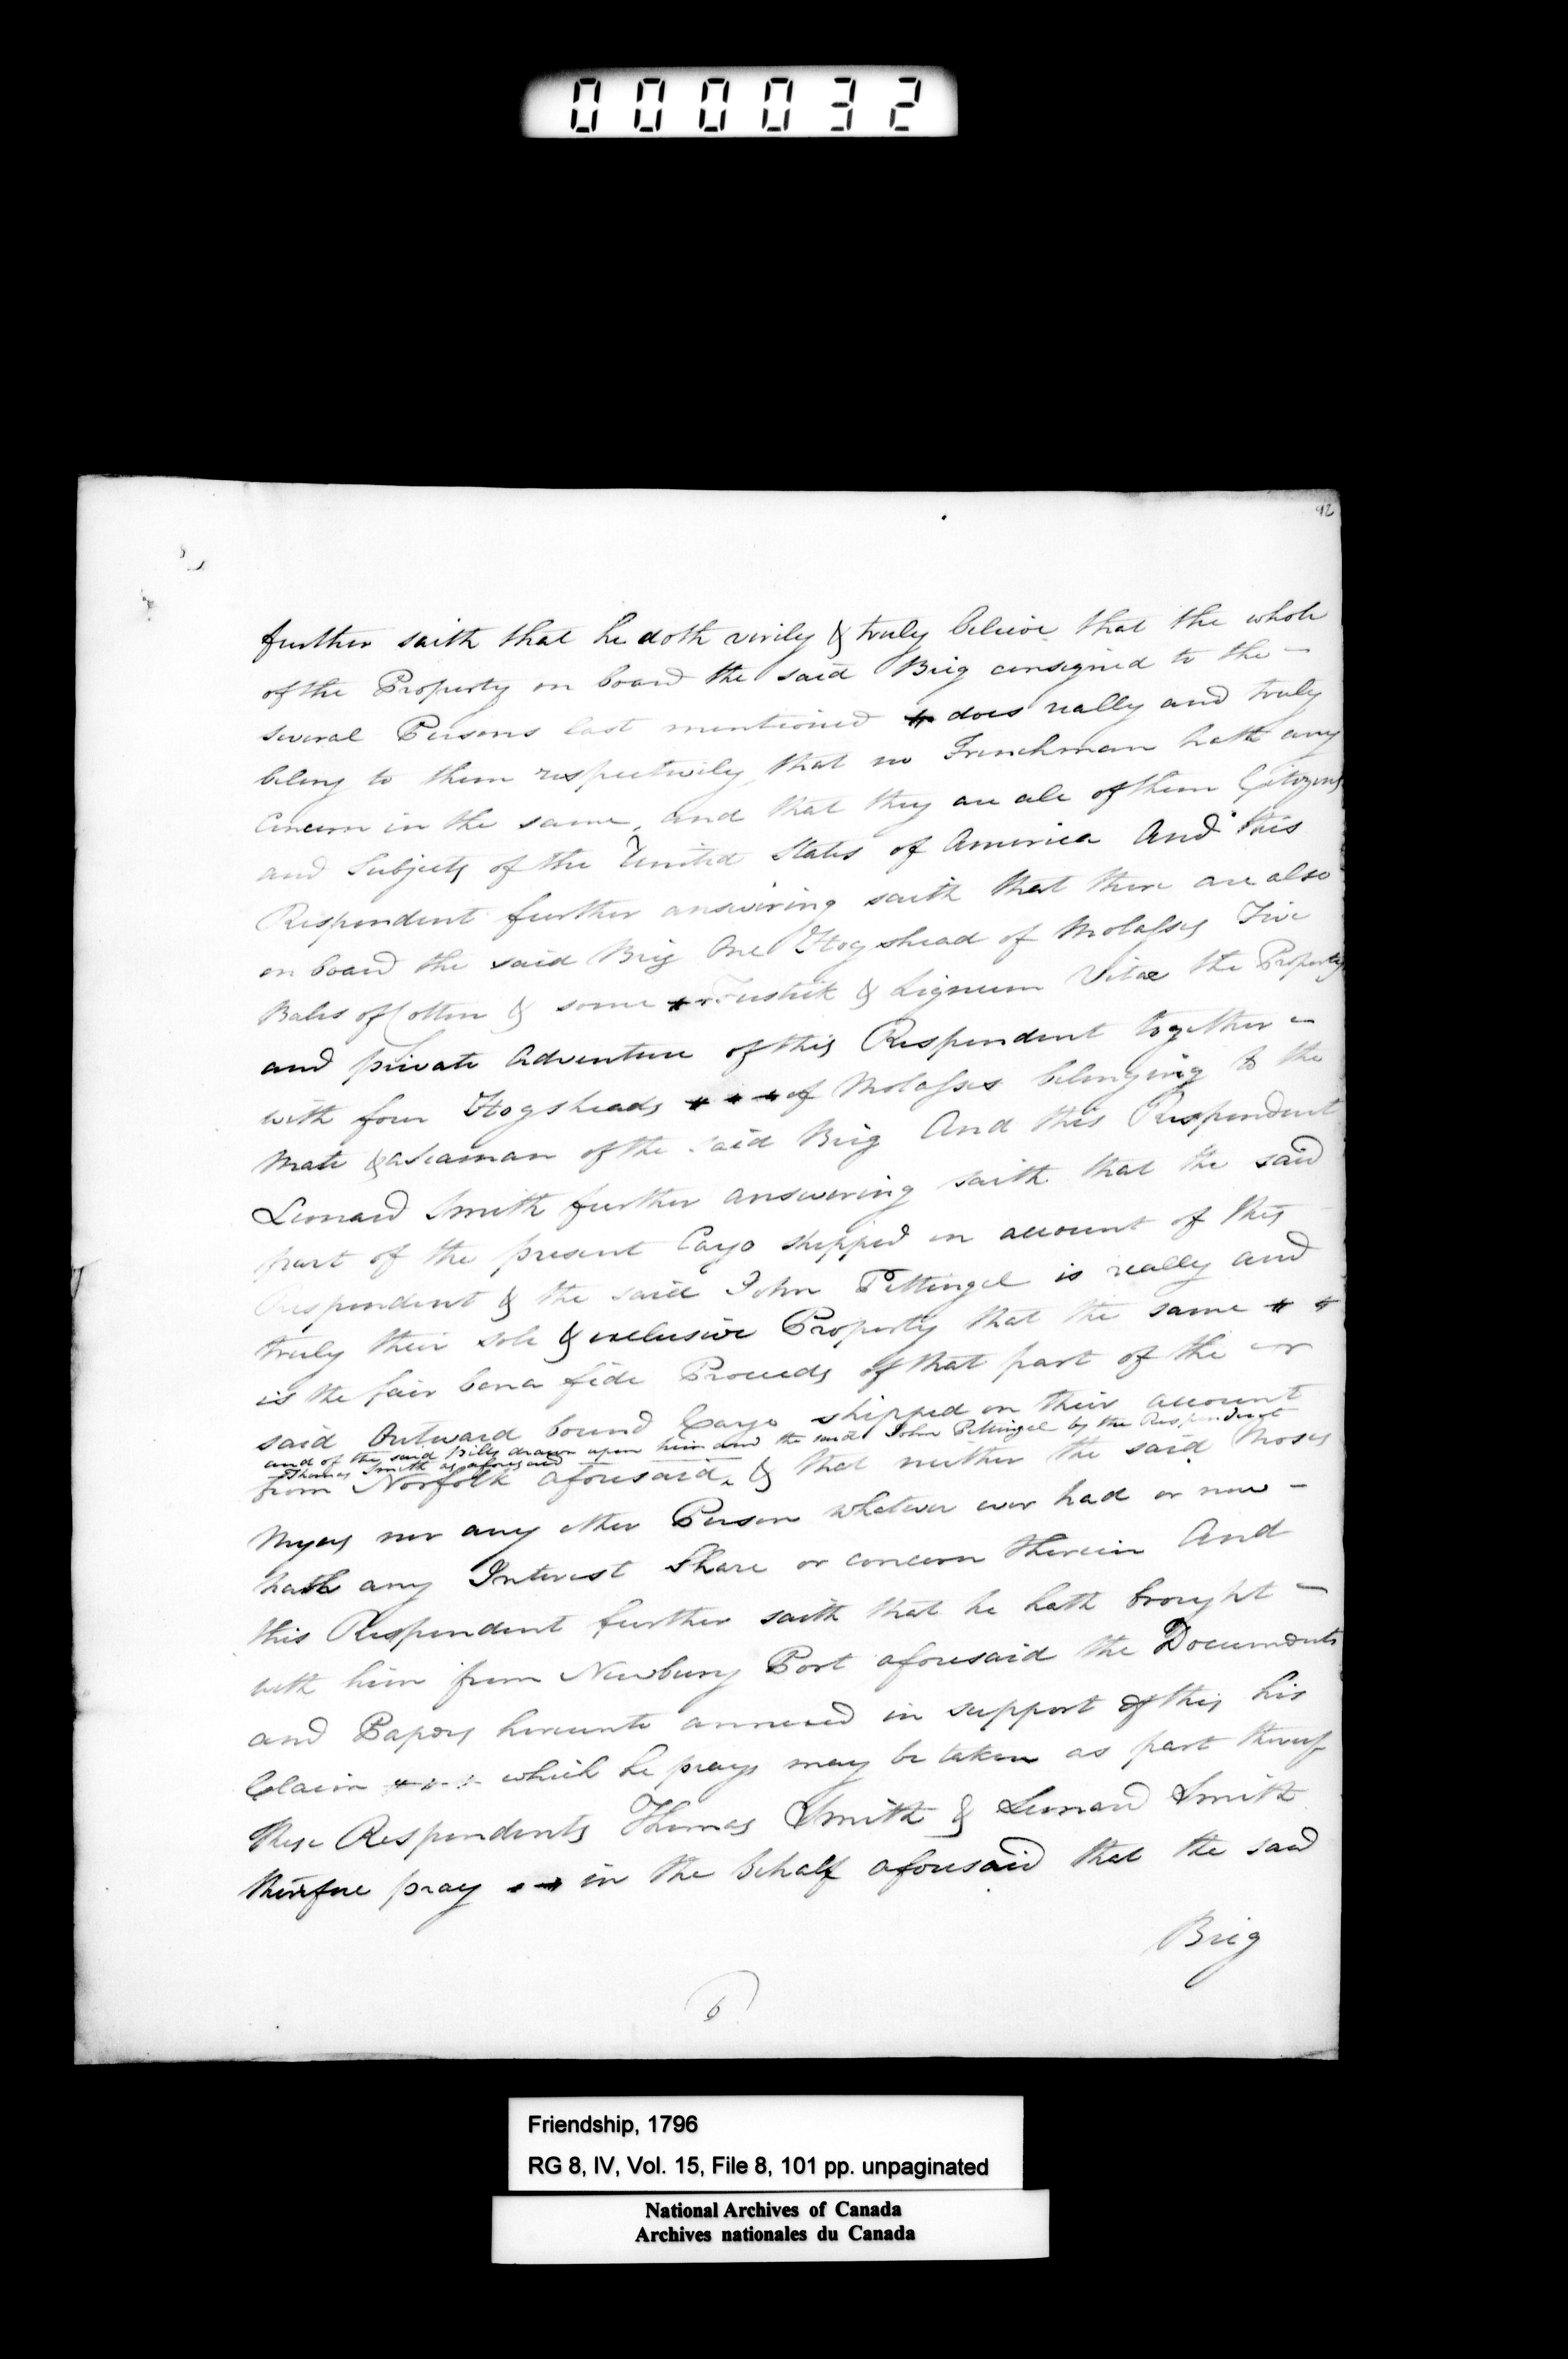 000032
42
further saith that he doth verily & truly believe that the whole
of the Property on board the said Brig consigned to the -
several Persons last mentioned does really and truly
belong to them respectively, that no Frenchman hath any
Concern in the same, and that they are all of them Citizens
and Subjects of the United States of America And this
Respondent further answering saith that there are also
on board the said Brig One Hogshead of Molasses Five
Bales of Cotton & some Fustick & Lignum Vitae the Property
and private Adventure of this Respondent together -
with four Hogsheads of Molasses belonging to the
Mate & a Seaman of the said Brig And this Respondent
Leonard Smith further answering saith that the said
part of the present Cargo shipped on account of this
Respondent & the said John Pettingel is really and
truly their sole & exclusive Property that the same
is the fair bona fide Proceeds of that part of the
said Outward bound Cargo shipped on their account
and of the said Bills drawn upon him and the said John Pettingel by the Respondent
Thomas Smith as aforesaid
from Norfolk aforesaid, & that neither the said Moses
Myers nor any other Person whatever ever had or now -
hath any Interest Share or concern therein And
this Respondent further saith that he hath brought -
with him from Newbury Port aforesaid the Documents
and Papers hereunto annexed in support of this his
Claim which he prays may be taken as part thereof
These Respondents Thomas Smith & Leonard Smith
therefore pray in the behalf aforesaid that the said
Brig
6
Friendship, 1796
RG 8, IV, Vol. 15, File 8, 101 pp. unpaginated
National Archives of Canada
Archives nationales du Canada